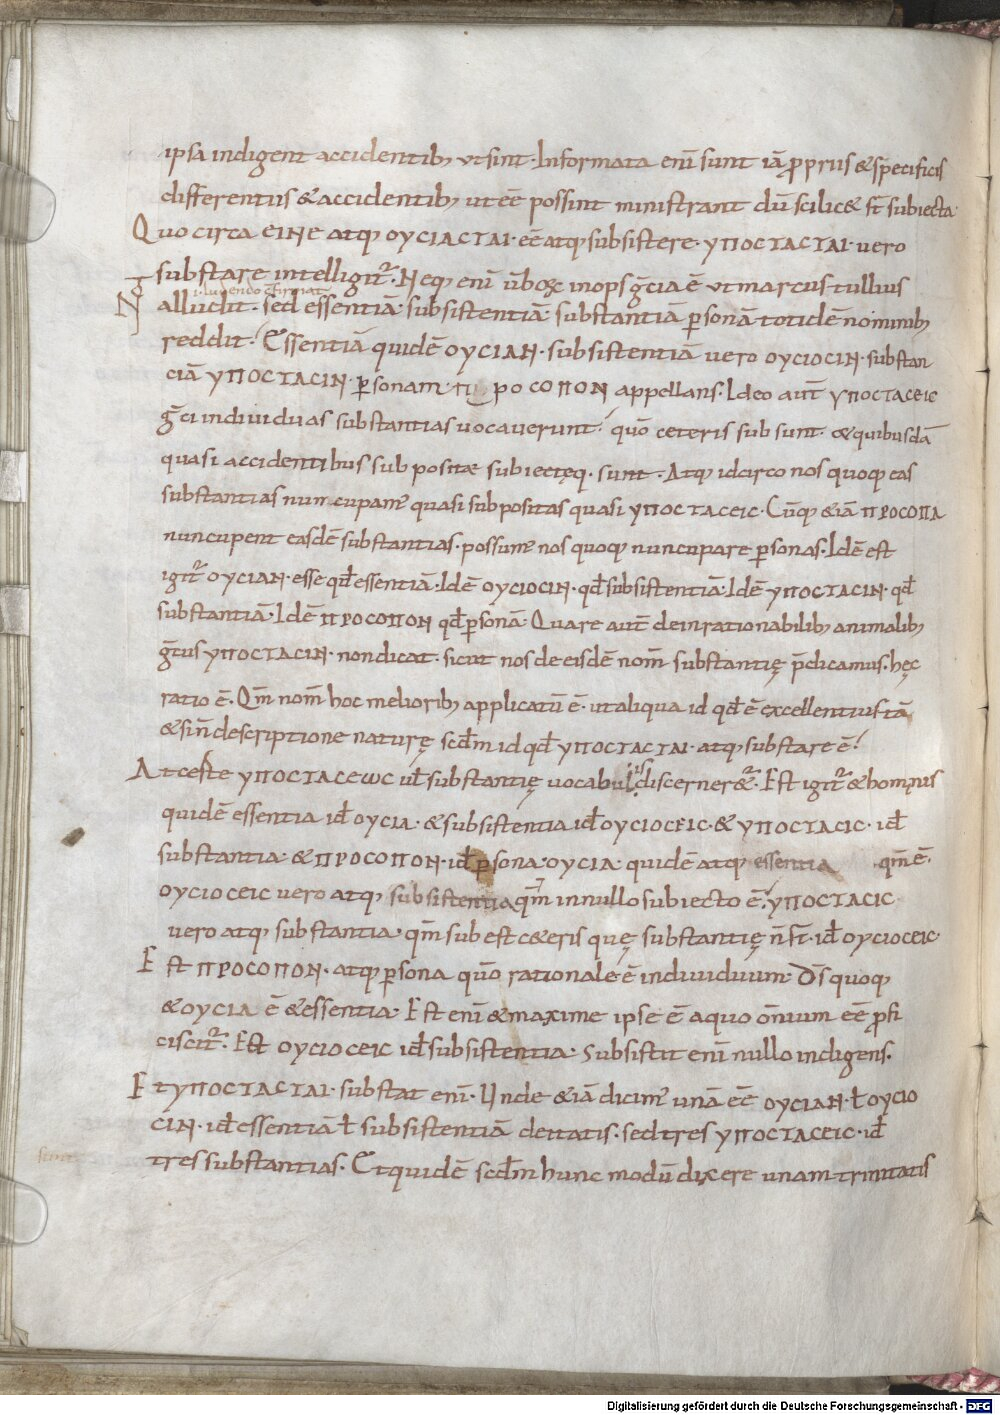 ipsa indigent accidentib; ut sint. Informata eni͞ sunt iā p̱prius & specificis
differentiis & accidentib; ut eē possint ministrant dū scilic& st̄ subiecta
Quo circa ΕΙΝΕ atq; ΟΥϹΙΑϹΤΑΙ. eē atq; subsistere. ΥΠΟϹΤΑϹΤΑΙ. vero
substare intelligit᷑. Neq; eni͞ inops gͨcia ē ut marcus tullius
i. ludendo
alludit. sed essentiā. subsistentiā. substantiā ꝑsonā totidē nominib;
reddit. Essentiā quidē ΟΥϹΙΑΝ. subsistentiā vero ΟΥϹΙΟϹΙΝ. substan
ciā ΥΠΟϹΤΑϹΙΝ. ꝑsonam. ΠΡΟϹΟΠΟΝ appellans. Ideo aut̄ ΥΠΟϹΤΑϹΕΙϹ
gͨci individuas substantias vocaverunt. qm̄o ceteris sub sunt. & quibusdā
quasi accidentibus sub positae subiectęq. sunt. Atq; idcirco nos quoq; eas
substantias nuncupam᷒ quasi subpositas quasi ΥΠΟϹΤΑϹΕΙϹ. Cūq; &iā ΠΡΟϹΟΠΑ
nuncupent easdē substantias. possum᷒ nos quoq; nuncupare ꝑsonas. Idē est
igit᷑ ΟΥϹΙΑΝ. esse qđ essentiā. Idē ΟΥϹΙΟϹΙΝ. qđ subsistentiā. Idē ΥΠΟϹΤΑϹΙΝ. qđ
substantiā. Idē ΠΡΟϹΟΠΟΝ qđ ꝑsonā. Quare aut̄ de inrationabilib; animalib;
gͨcus ΥΠΟϹΤΑϹΙΝ. non dicat. sicut nos de eisdē nom̄ substantię p̄dicamus. hęc
ratio ē. Qm̄ nom̄ hoc meliorib; applicatū ē. ut aliqua id qđ ē excellentius. tā
& si n̄ descriptione naturę scđm id qđ ΥΠΟϹΤΑϹΤΑΙ. atq; substare ē.
At ceste ΥΠΟϹΤΑϹΕΩϹ uł substantię vocabulis discerner&᷑. Est igit᷑ & hominis
quidē essentia iđ ΟΥϹΙΑ. & subsistentia iđ ΟΥϹΙΟϹΕΙϹ. & ΥΠΟϹΤΑϹΙϹ. iđ
substantia. & ΠΡΟϹΟΠΟΝ. iđ ꝑsona. ΟΥϹΙΑ. quidē atq; essentia qm̄ ē.
ΟΥϹΙΟϹΕΙϹ vero atq; subsistentia qm̄ in nullo subiecto ē. ΥΠΟϹΤΑϹΙϹ
vero atq; substantia. qm̄ sub est c&eris quę substantię n̄ st̄. iđ ΟΥϹΙΟϹΕΙϹ.
Est ΠΡΟϹΟΠΟΝ. atq; ꝑsona quo rationale ē individuum. Ds̄ quoq;
& ΟΥϹΙΑ ē & essentia. Est eni͞ & maxime ipse ē a quo om̄ium eē p̱fi
ciscit᷑. Est ΟΥϹΙΟϹΕΙϹ iđ subsistentia. Subsistit eni͞ nullo indigens.
Et ΥΠΟϹΤΑϹΤΑΙ. substat eni͞. Unde &iā dicim᷒ unā eē ΟΥϹΙΑΝ. ł ΟΥϹΙΟ
ϹΙΝ. iđ essentiā ł subsistentiā deitatis. sed tres ΥΠΟϹΤΑϹΕΙϹ. iđ
tres substantias. Et quidē scđm hunc modū dixere unam trinitatis